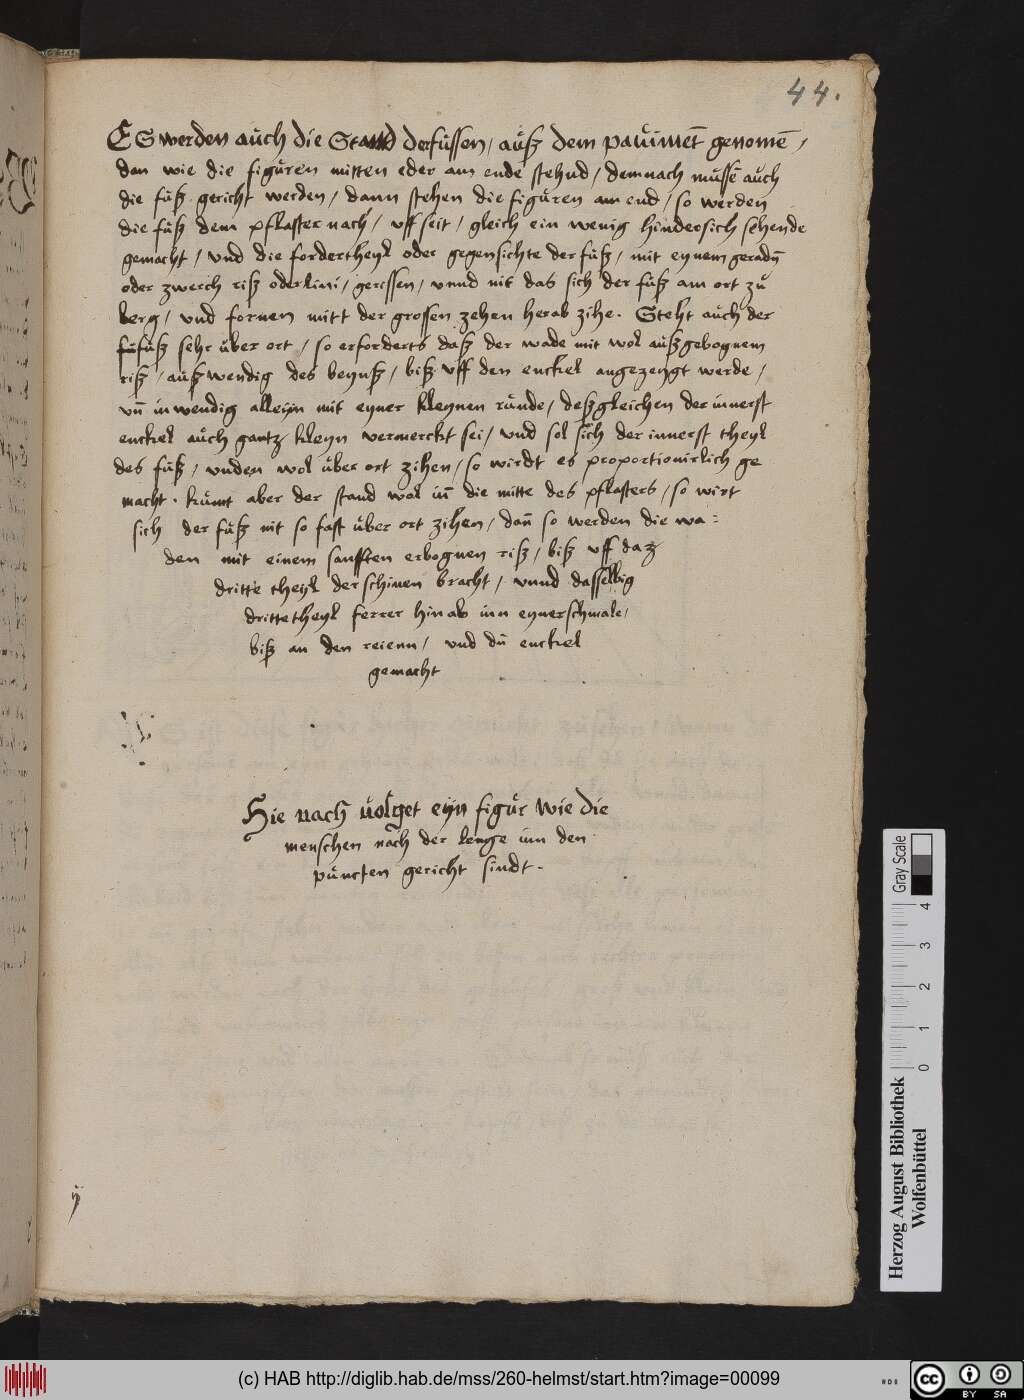 44.
ES werden aůch die Stannd der füssen / aůß dem paůimēt genomē /
dan wie die figůren mitten eder am ende stehnd / demnach můssē aůch
die fůß gericht werden / dann stehen die figůren am end / so werden
die fůß dem pflaster nach / uff seit / gleich ein wenig hindersich sehende
gemacht / und die fordertheyl oder gegensichte der fůß / mit eynem geradn̄
oder zwerch riß oder lini / gerissen / unnd nit das sich der fůß am ort zů
berg / und fornen mitt der grossen zehen herab zihe. Steht aůch der
fůß sehr ůber ort / so erforderts daß der wade mit wol aůßgebognem
riß / aůßwendig des beynß / biß uff den enckel angezeygt werde /
vn̄ inwendig alleyn mit eyner kleynen růnde / deßgleichen der innerst
enckel aůch gantz kleyn vermerckt sei / und sol sich der innerst theyl
des fůß / unden wol ůber ort zihen / so wirdt es proportionirlich ge
macht. kůmt aber der stand wol in̄ die mitte des pflasters / so wirt
sich der fůß nit so fast ůber ort zihen / dan̄ so werden die wa=
den mit einem sanfften erbognen riß / biß uff daz
dritte theyl der schinen bracht / unnd dasselbig
dritte theyl ferrer hinab inn eyner schmale /
biß an den reienn / und dn̄ enckel
gemacht
Hie nach volget eyn figůr wie die
menschen nach der lenge inn den
půncten gericht sindt.
Gray Scale
0 1 2 3 4
Herzog August Bibliothek
Wolfenbüttel
(c) HAB http://diglib.hab.de/mss/260-helmst/start.htm?image=00099
cc BY SA